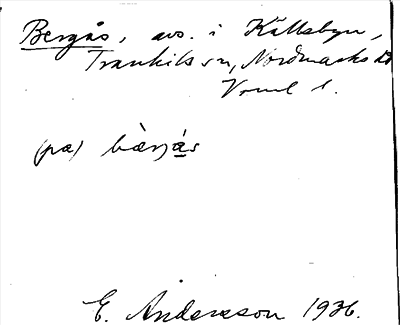 Bergås, avs. i Källsbyn,
Trankils sn, Nordmarks hd
Vrml l.
(pa) bæ̀rjás
E. Andersson 1936.